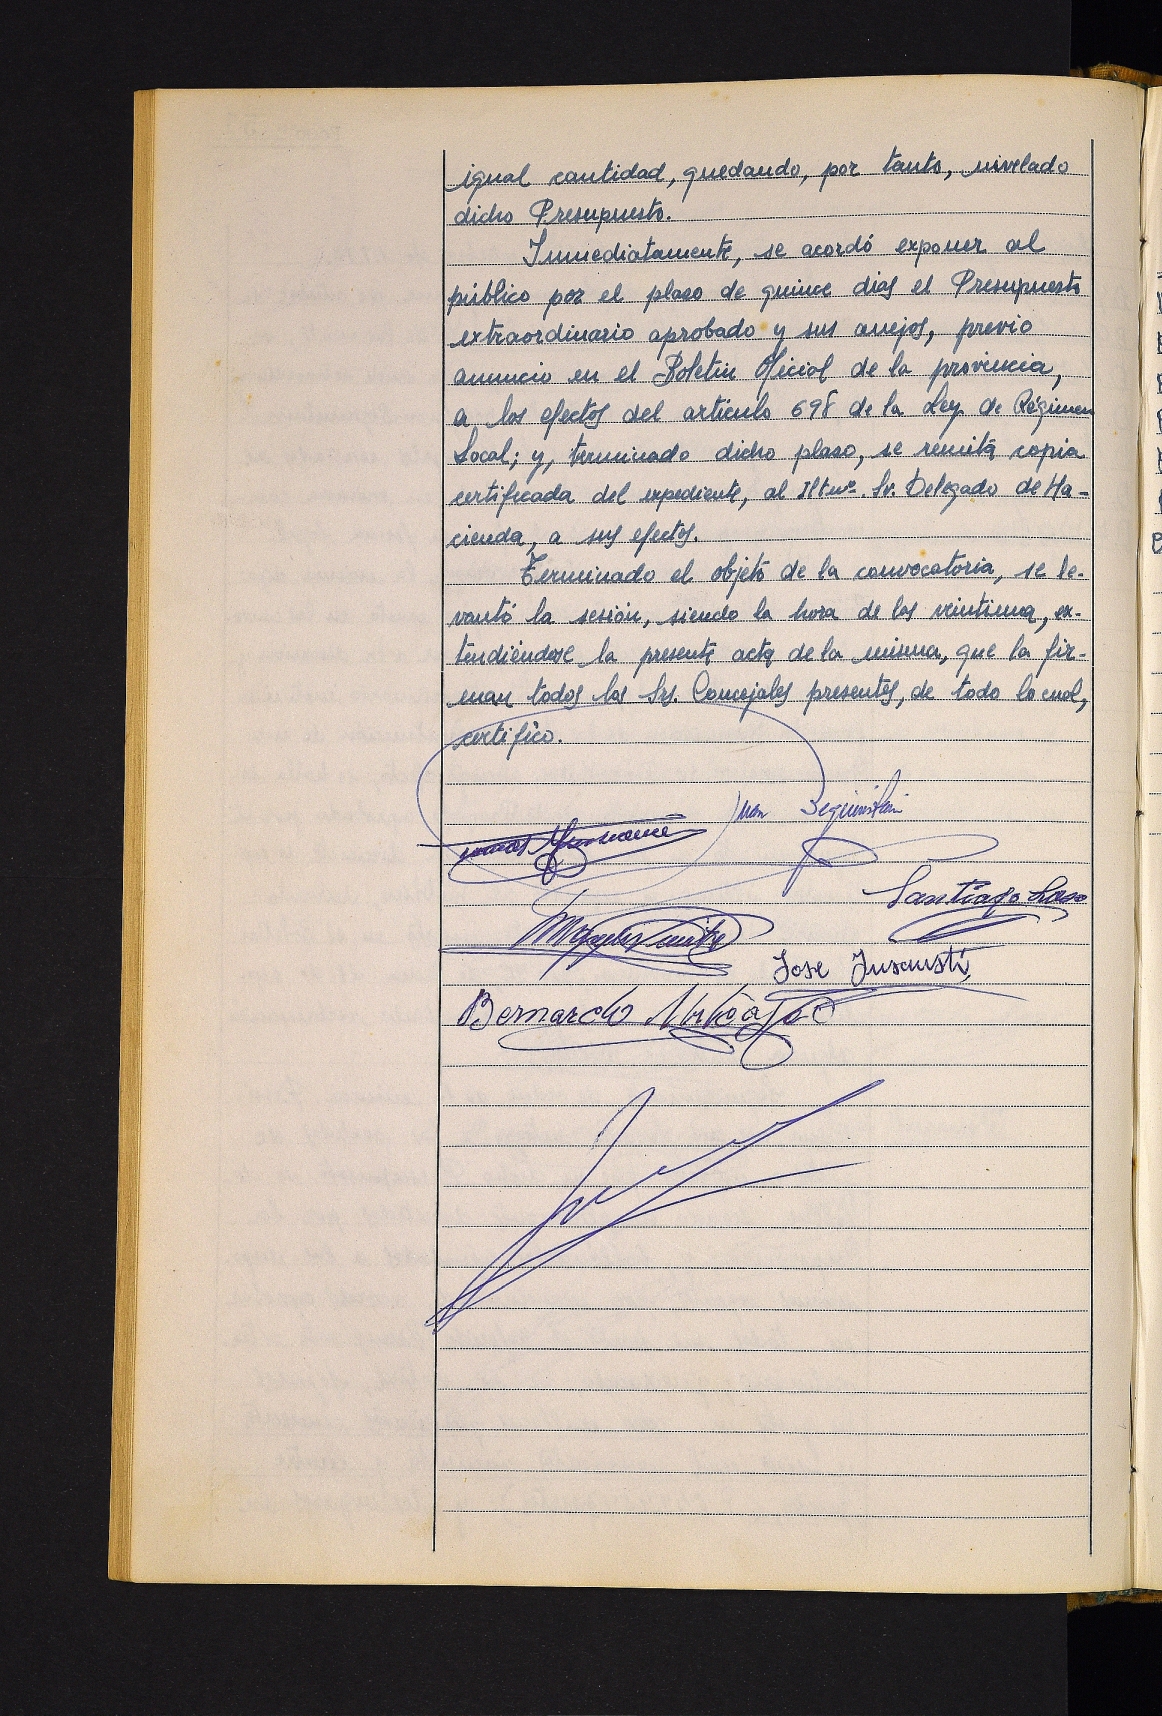 igual cantidad, quedando, por tanto, nivelado
dicho Presupuesto.
Inmediatamente, se acordó exponer al
público por el plazo de quince días el Presupuesto
extraordinario aprobado y sus anejos, previo
anuncio en el Boletín Oficial de la provincia,
a los efectos del artículo 698 de la Ley de Régimen
Local; y, terminado dicho plazo, se remita copia
certificada del expediente, al Iltmo. Sr. Delegado de Ha-
cienda, a sus efectos.
Terminado el objeto de la convocatoria, se le-
vantó la sesión, siendo la hora de las veintiuna, ex-
tendiéndose la presente acta de la misma, que la fir-
man todos los Srs. Concejales presentes, de todo lo cual,
certifico.
Juan Beguiristain
Santiago Laso
Jose Insausti
Bernardo